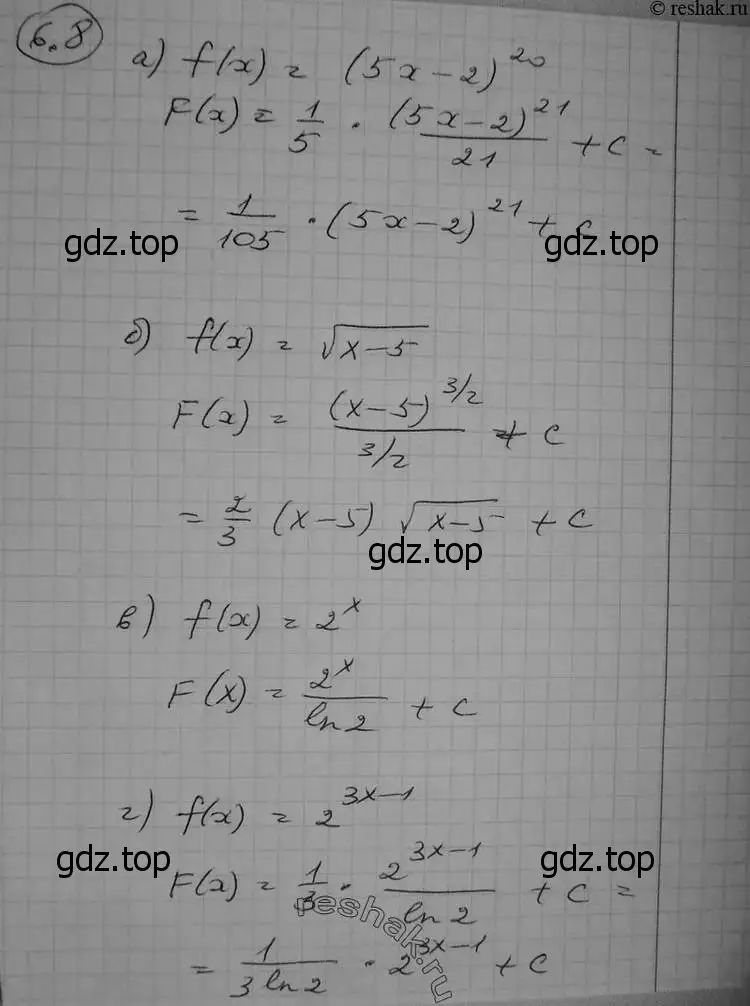 © reshak.ru
6.8
а) f(x) = (5x-2)^20
F(x) = 1/5 · (5x-2)^21/21 + C =
= 1/105 · (5x-2)^21 + C
gdz.top gdz.top
б) f(x) = √(x-5)
F(x) = (x-5)^(3/2)/(3/2) + C
= 2/3 (x-5) √(x-5) + C
gdz.top
в) f(x) = 2^x
F(x) = 2^x/ln 2 + C
г) f(x) = 2^(3x-1)
gdz.top gdz.top
F(x) = 1/3 · 2^(3x-1)/ln 2 + C =
reshak.ru
= 1/(3 ln 2) · 2^(3x-1) + C